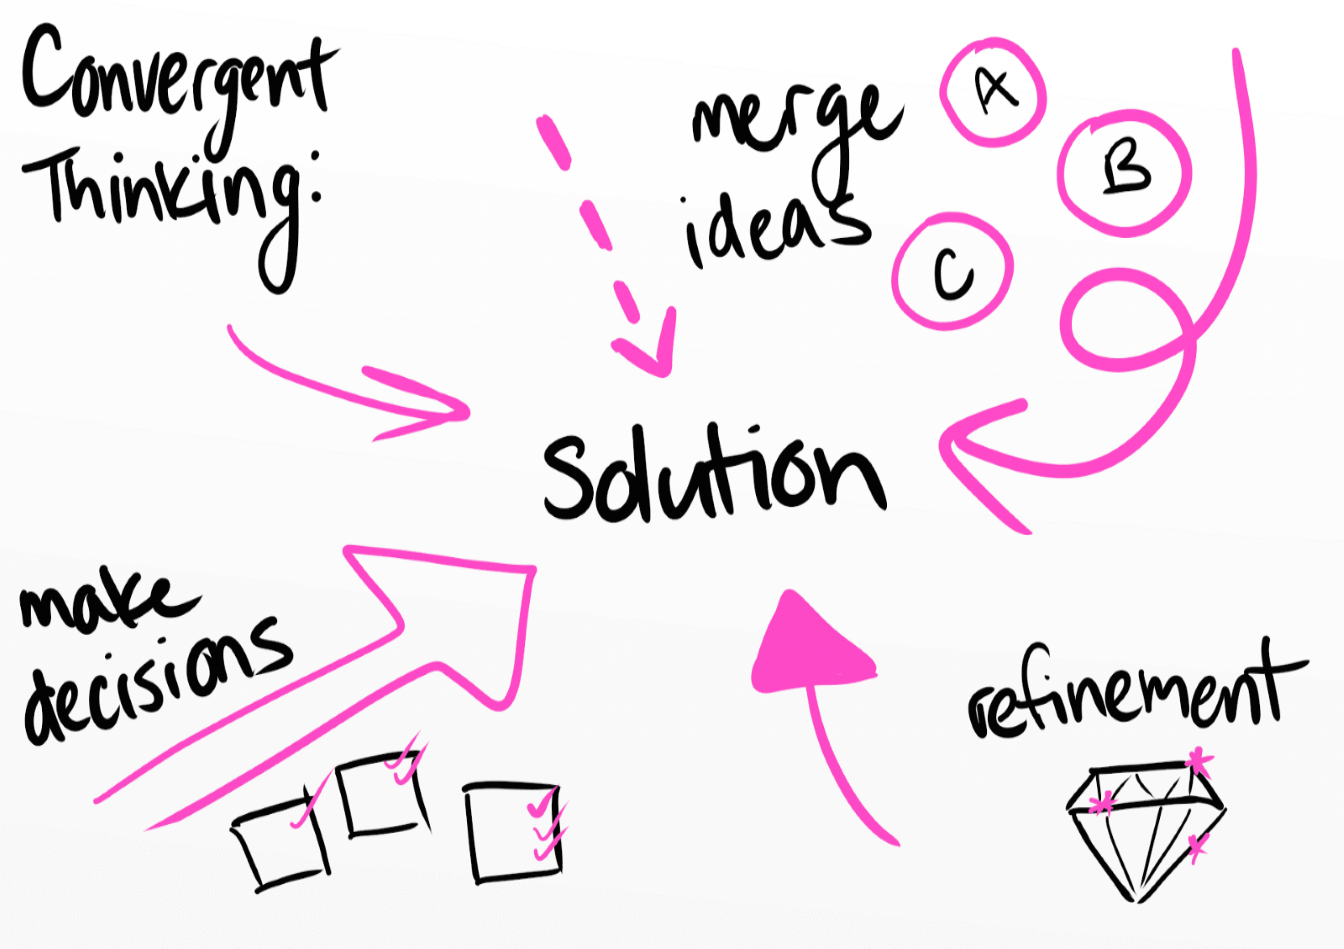 Convergent
Thinking:
merge
ideas
A
B
C
Solution
make
decisions
refinement